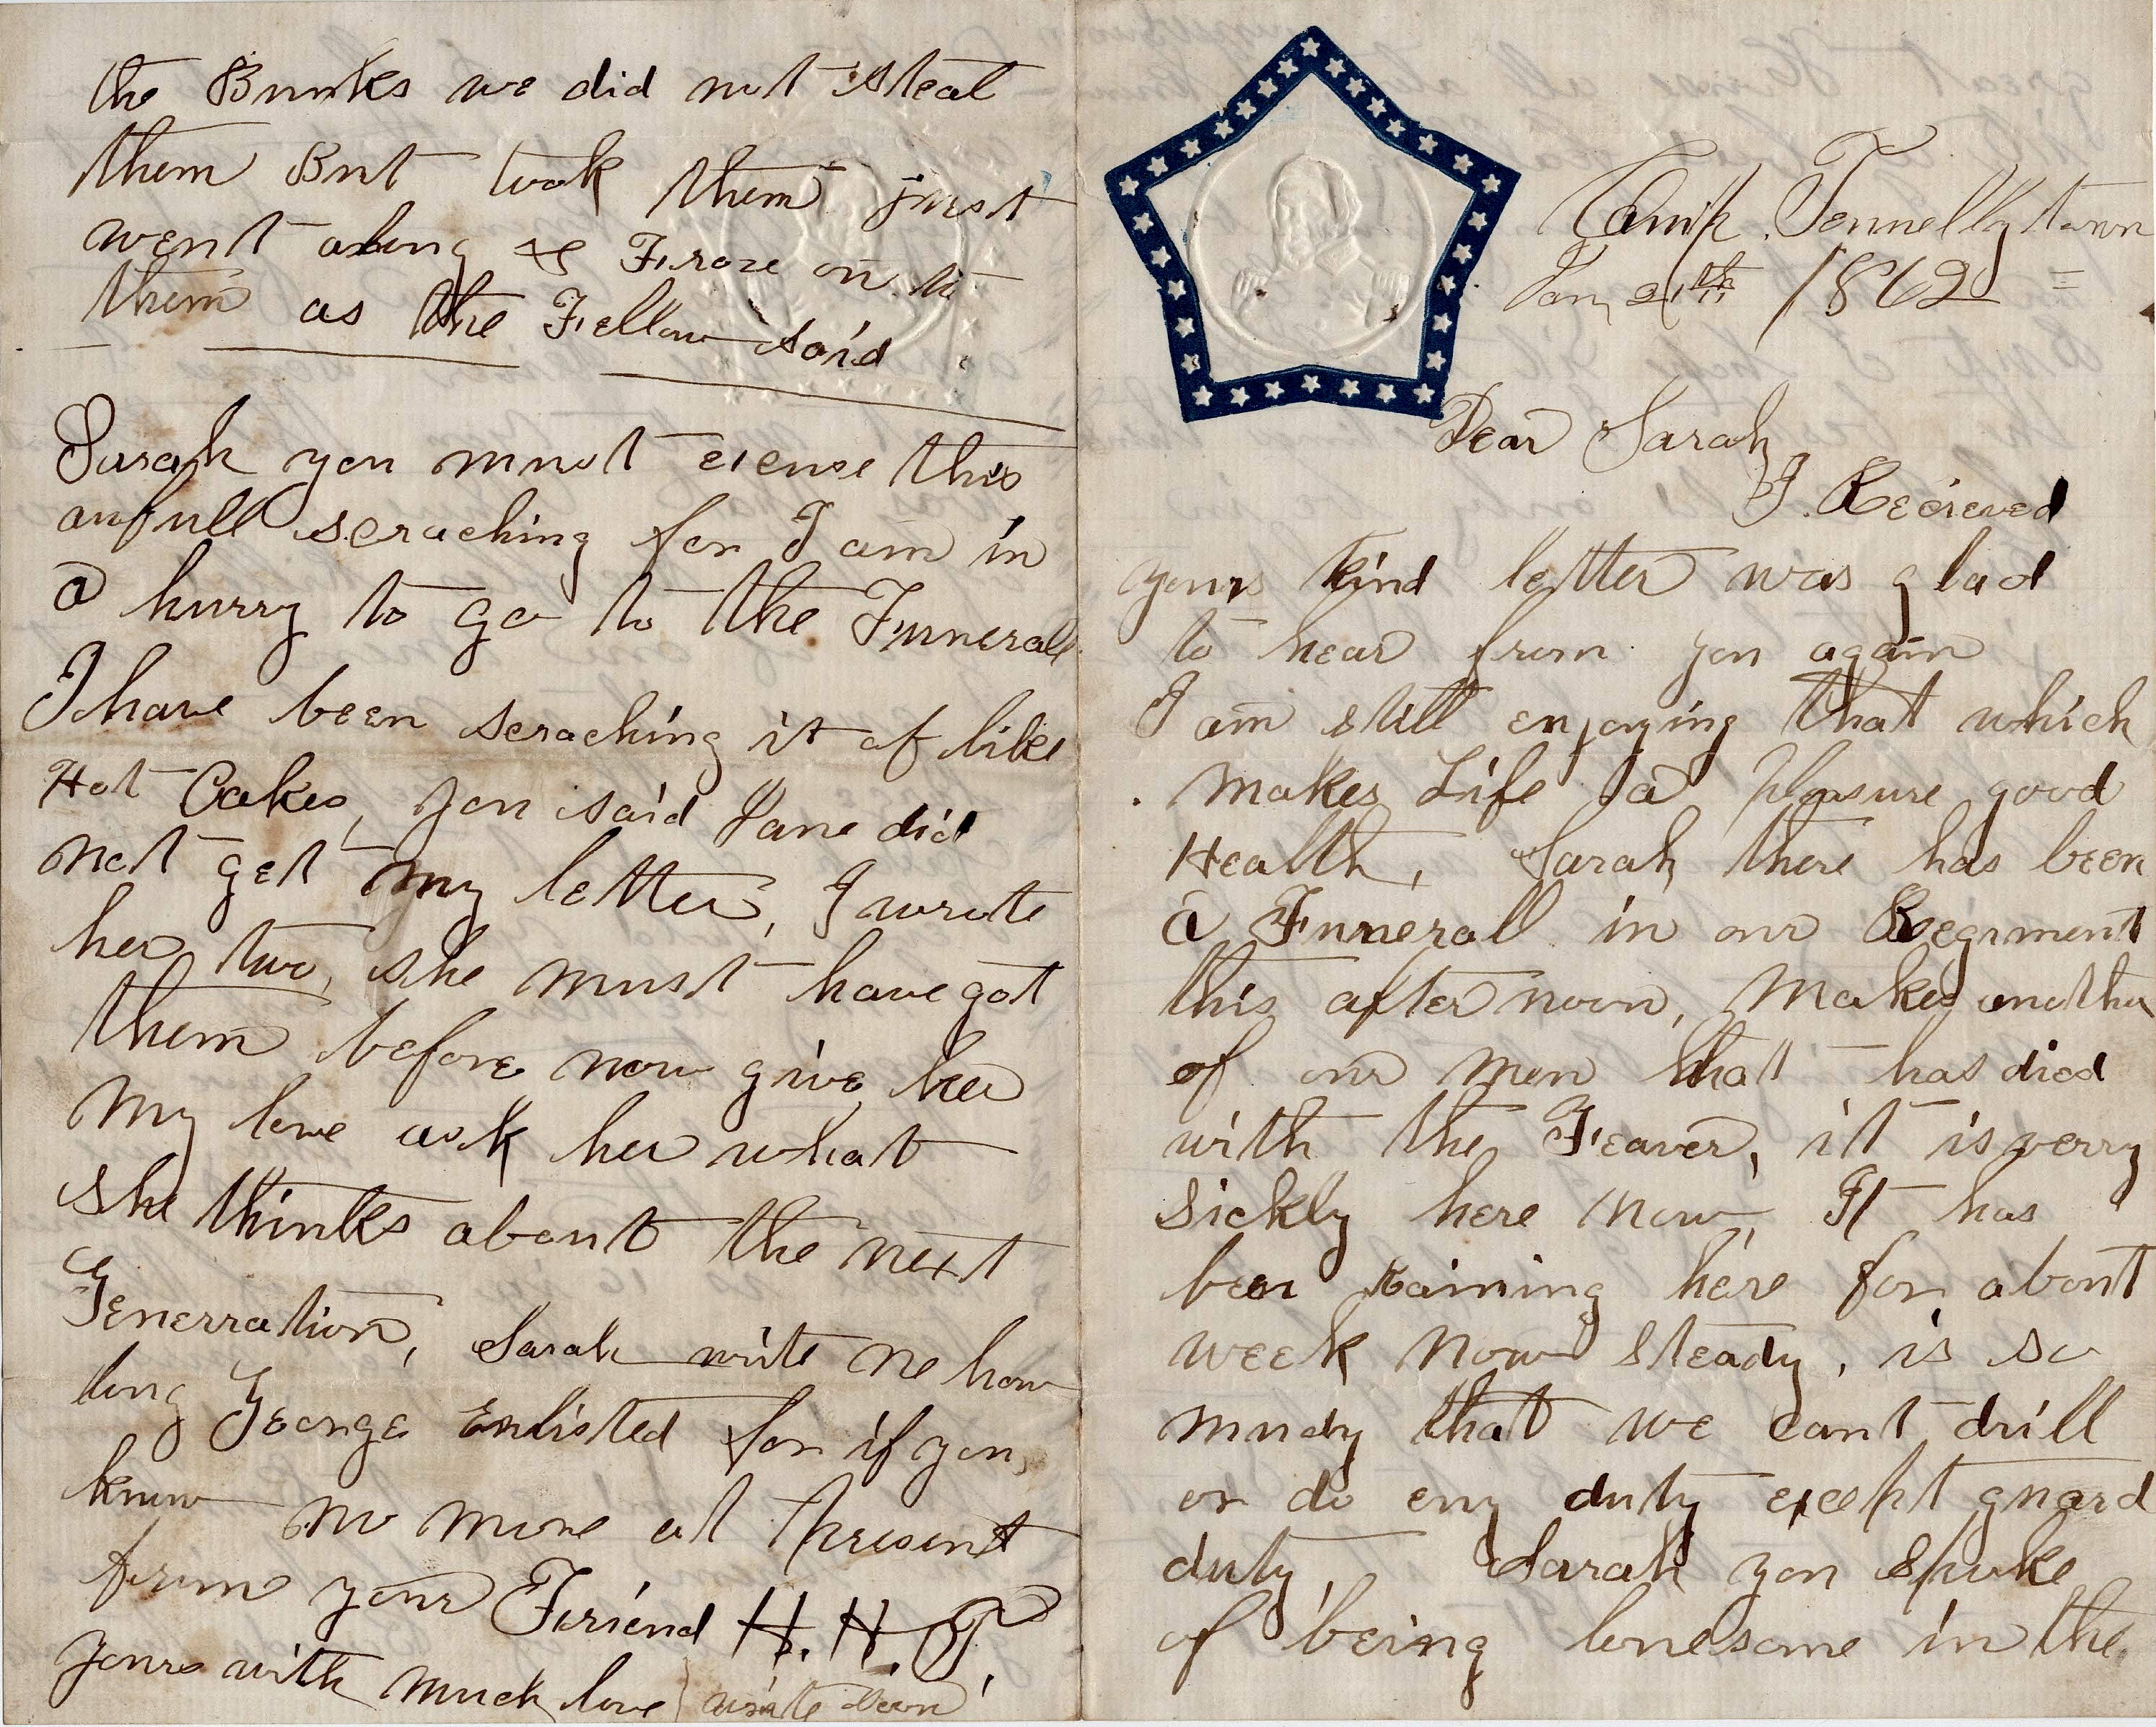 the Bunks we did not steal
them But took them just
went along & Froze on to
them as the Fellow said
Sarah you must excuse this
awfull scraching for I am in
a hurry to go to the Funerall
I have been scraching it of like
Hot Cakes, you said Jane did
not get my letter, I wrote
her two, she must have got
them before now give her
My love ask her what
she thinks about the next
Generration, Sarah write me how
long George Enlisted for if you
know no more at present
from your Friend H. H. T.
yours with much love write soon
Camp Tennellytown
Jan 21th 1862
Dear Sarah
I Recieved
yours kind letter was glad
to hear from you again
I am still enjoying that which
Makes Life a pleasure good
Health, Sarah there has been
a Funerall in our Regiment
this after noon, Makes another
of our Men that has died
with the Feaver, it is verry
sickly here Now, It has
been raining here for about
week Now steady, is so
mudy that we cant drill
or do eny duty except guard
duty, Sarah you spoke
of being lonesome in the